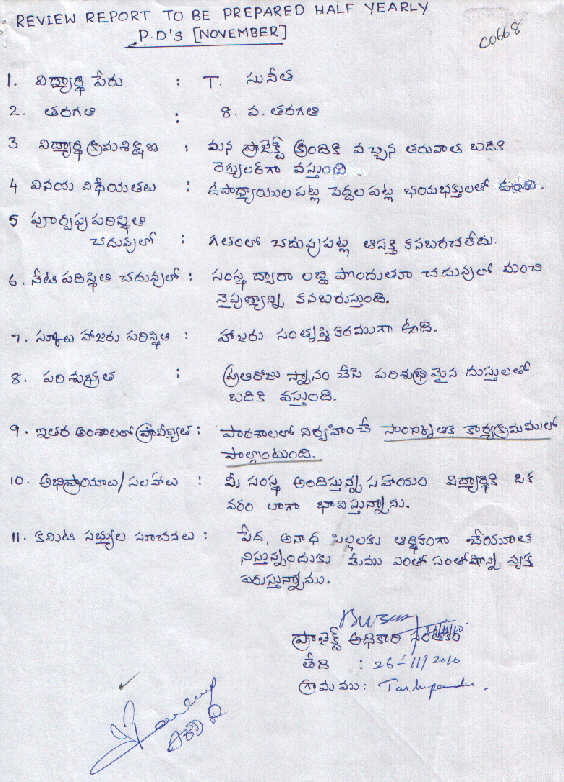 REVIEW REPORT TO BE PREPARED HALF YEARLY
P.D'S [NOVEMBER]
C0668
1. విద్యార్థి పేరు : T. సునీత
2. తరగతి : 8 వ. తరగతి
3 విద్యార్థి క్రమశిక్షణ : మన ప్రాజెక్ట్ అందికి వచ్చిన తరువాత బడికి
రెగ్యులర్‌గా వస్తుంది.
4 వినయ విధేయతలు : ఉపాధ్యాయుల పట్ల పెద్దల పట్ల భయభక్తులతో ఉంటుంది.
5 పూర్వపు పరిస్థితి
చదువులో : గతంలో చదువుపట్ల ఆసక్తి కనబరచలేదు.
6. నేటి పరిస్థితి చదువులో : సంస్థ ద్వారా లబ్ది పొందుతూ చదువులో మంచి
నైపుణ్యాన్ని కనబరుస్తుంది.
7. స్కూలు హాజరు పరిస్థితి : హాజరు సంతృప్తికరముగా ఉంది.
8. పరిశుభ్రత : ప్రతిరోజు స్నానం చేసి పరిశుభ్రమైన దుస్తులతో
బడికి వస్తుంది.
9. ఇతర అంశాలలో ప్రావీణ్యత : పాఠశాలలో నిర్వహించే సాంస్కృతిక కార్యక్రమములో
పాల్గొంటుంది.
10. అభిప్రాయాలు/సలహాలు : మీ సంస్థ అందిస్తున్న సహాయం విద్యార్థికి ఒక
వరం లాగా భావిస్తున్నాను.
11. కమిటి సభ్యుల సూచనలు : పేద, అనాధ పిల్లలకు ఆర్థికంగా చేయూత
నిస్తున్నందుకు మేము ఎంతో సంతోషాన్ని వ్యక్త
పరుస్తున్నాము.
ప్రాజెక్ట్ అధికారి సంతకం
తేది : 26-11/2010
గ్రామము :